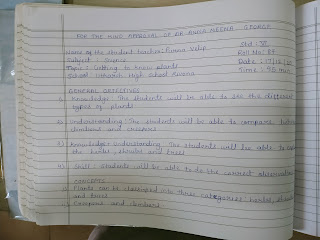 FOR THE KIND APPROVAL OF DR. ANNA NEENA GEORGE
Name of the student teacher: Purana Velip
Subject : Science
Topic : Getting to know plants
School : Utkarsh High School
Std :
Roll No: 84
Date : 17/12/
Time : 30 min
GENERAL OBJECTIVES
1) Knowledge: The students will be able to see the different
types of plants
2) Understanding: The students will be able to compare
climbers and creepers
3) Knowledge: Understanding: The students will be able to
the herbs, shrubs and trees
4) Skill : Students will be able to do the correct observation
CONCEPTS
1) Plants can be classified into three categories: herbs, shrubs
and trees
2) Creepers and climbers